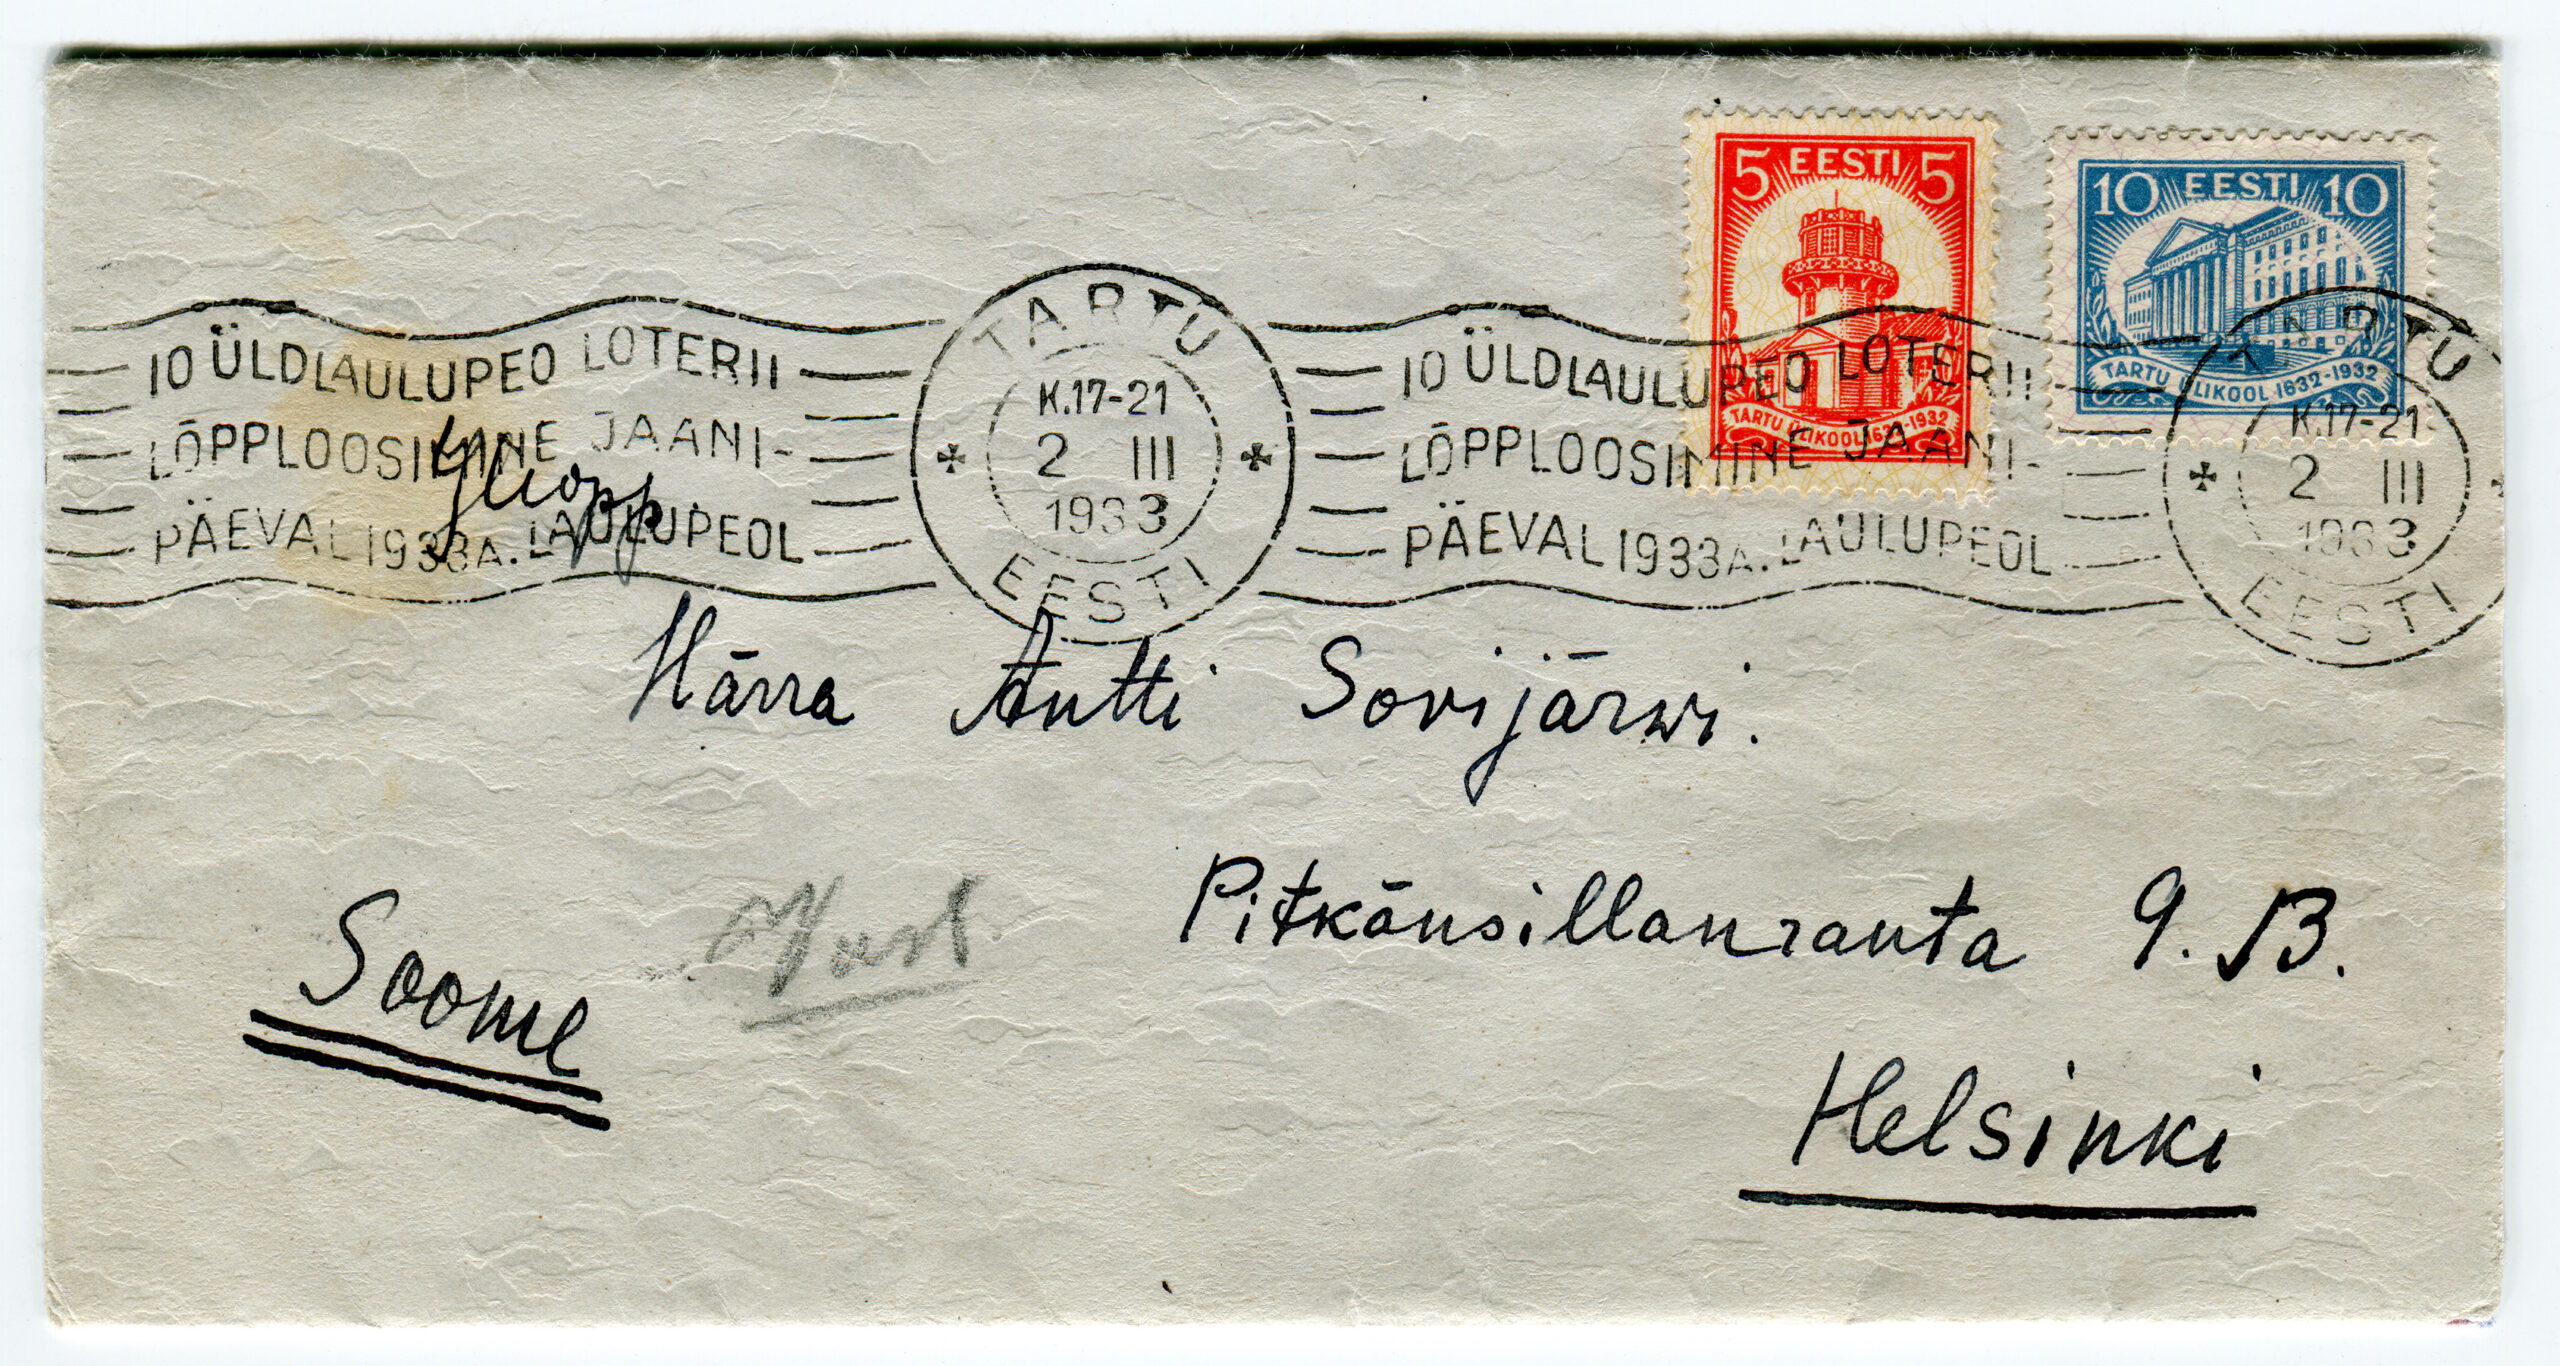 5 EESTI 5
TARTU ÜLIKOOL 1632-1932
10 EESTI 10
TARTU ÜLIKOOL 1632-1932
10 ÜLDLAULUPEO LOTERII
LÕPPLOOSIMINE JAANI-
PÄEVAL 1933A. LAULUPEOL
TARTU
K.17-21
2 III
1933
EESTI
10 ÜLDLAULUPEO LOTERII
LÕPPLOOSIMINE JAANI-
PÄEVAL 1933A. LAULUPEOL
TARTU
K.17-21
2 III
1933
EESTI
Härra Antti Sovijärwi.
Pitkänsillanranta 9. B.
Soome
Helsinki